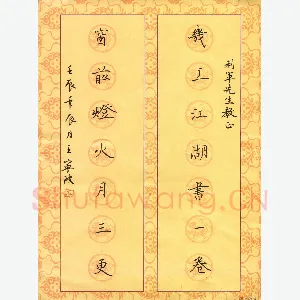 利军先生教正
几上江湖書一卷
窗前燈火月三更
壬辰年辰月王寧波
Shufawang.CN